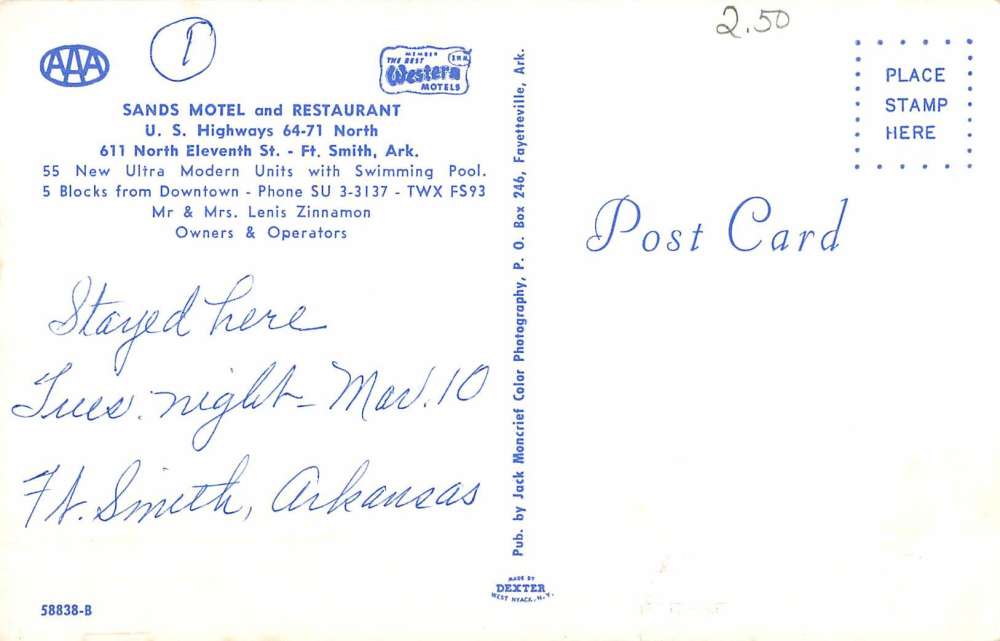 2.50
1
AAA
MEMBER
THE BEST
Western
MOTELS
SANDS MOTEL and RESTAURANT
U. S. Highways 64-71 North
611 North Eleventh St. - Ft. Smith, Ark.
55 New Ultra Modern Units with Swimming Pool.
5 Blocks from Downtown - Phone SU 3-3137 - TWX FS93
Mr & Mrs. Lenis Zinnamon
Owners & Operators
Stayed here
Tues. night - Mar. 10
Ft. Smith, Arkansas
58838-B
Pub. by Jack Moncrief Color Photography, P. O. Box 246, Fayetteville, Ark.
MADE BY
DEXTER
WEST NYACK, N.Y.
PLACE
STAMP
HERE
Post Card